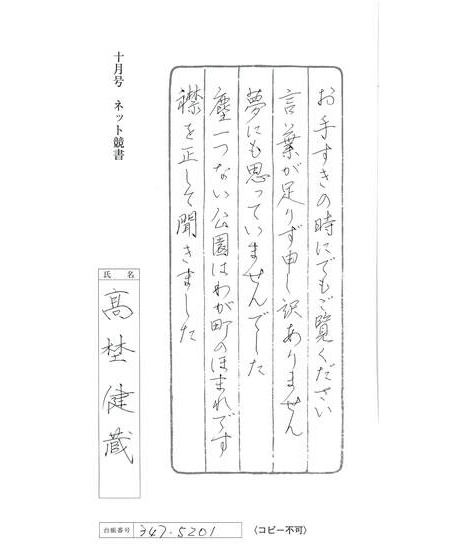 お手すきの時にでもご覧ください
言葉が足りず申し訳ありません
夢にも思っていませんでした
塵一つない公園はわが町のほまれです
襟を正して聞きました
十月号 ネット競書
氏名
髙埜健蔵
台帳番号 347-5201
〈コピー不可〉